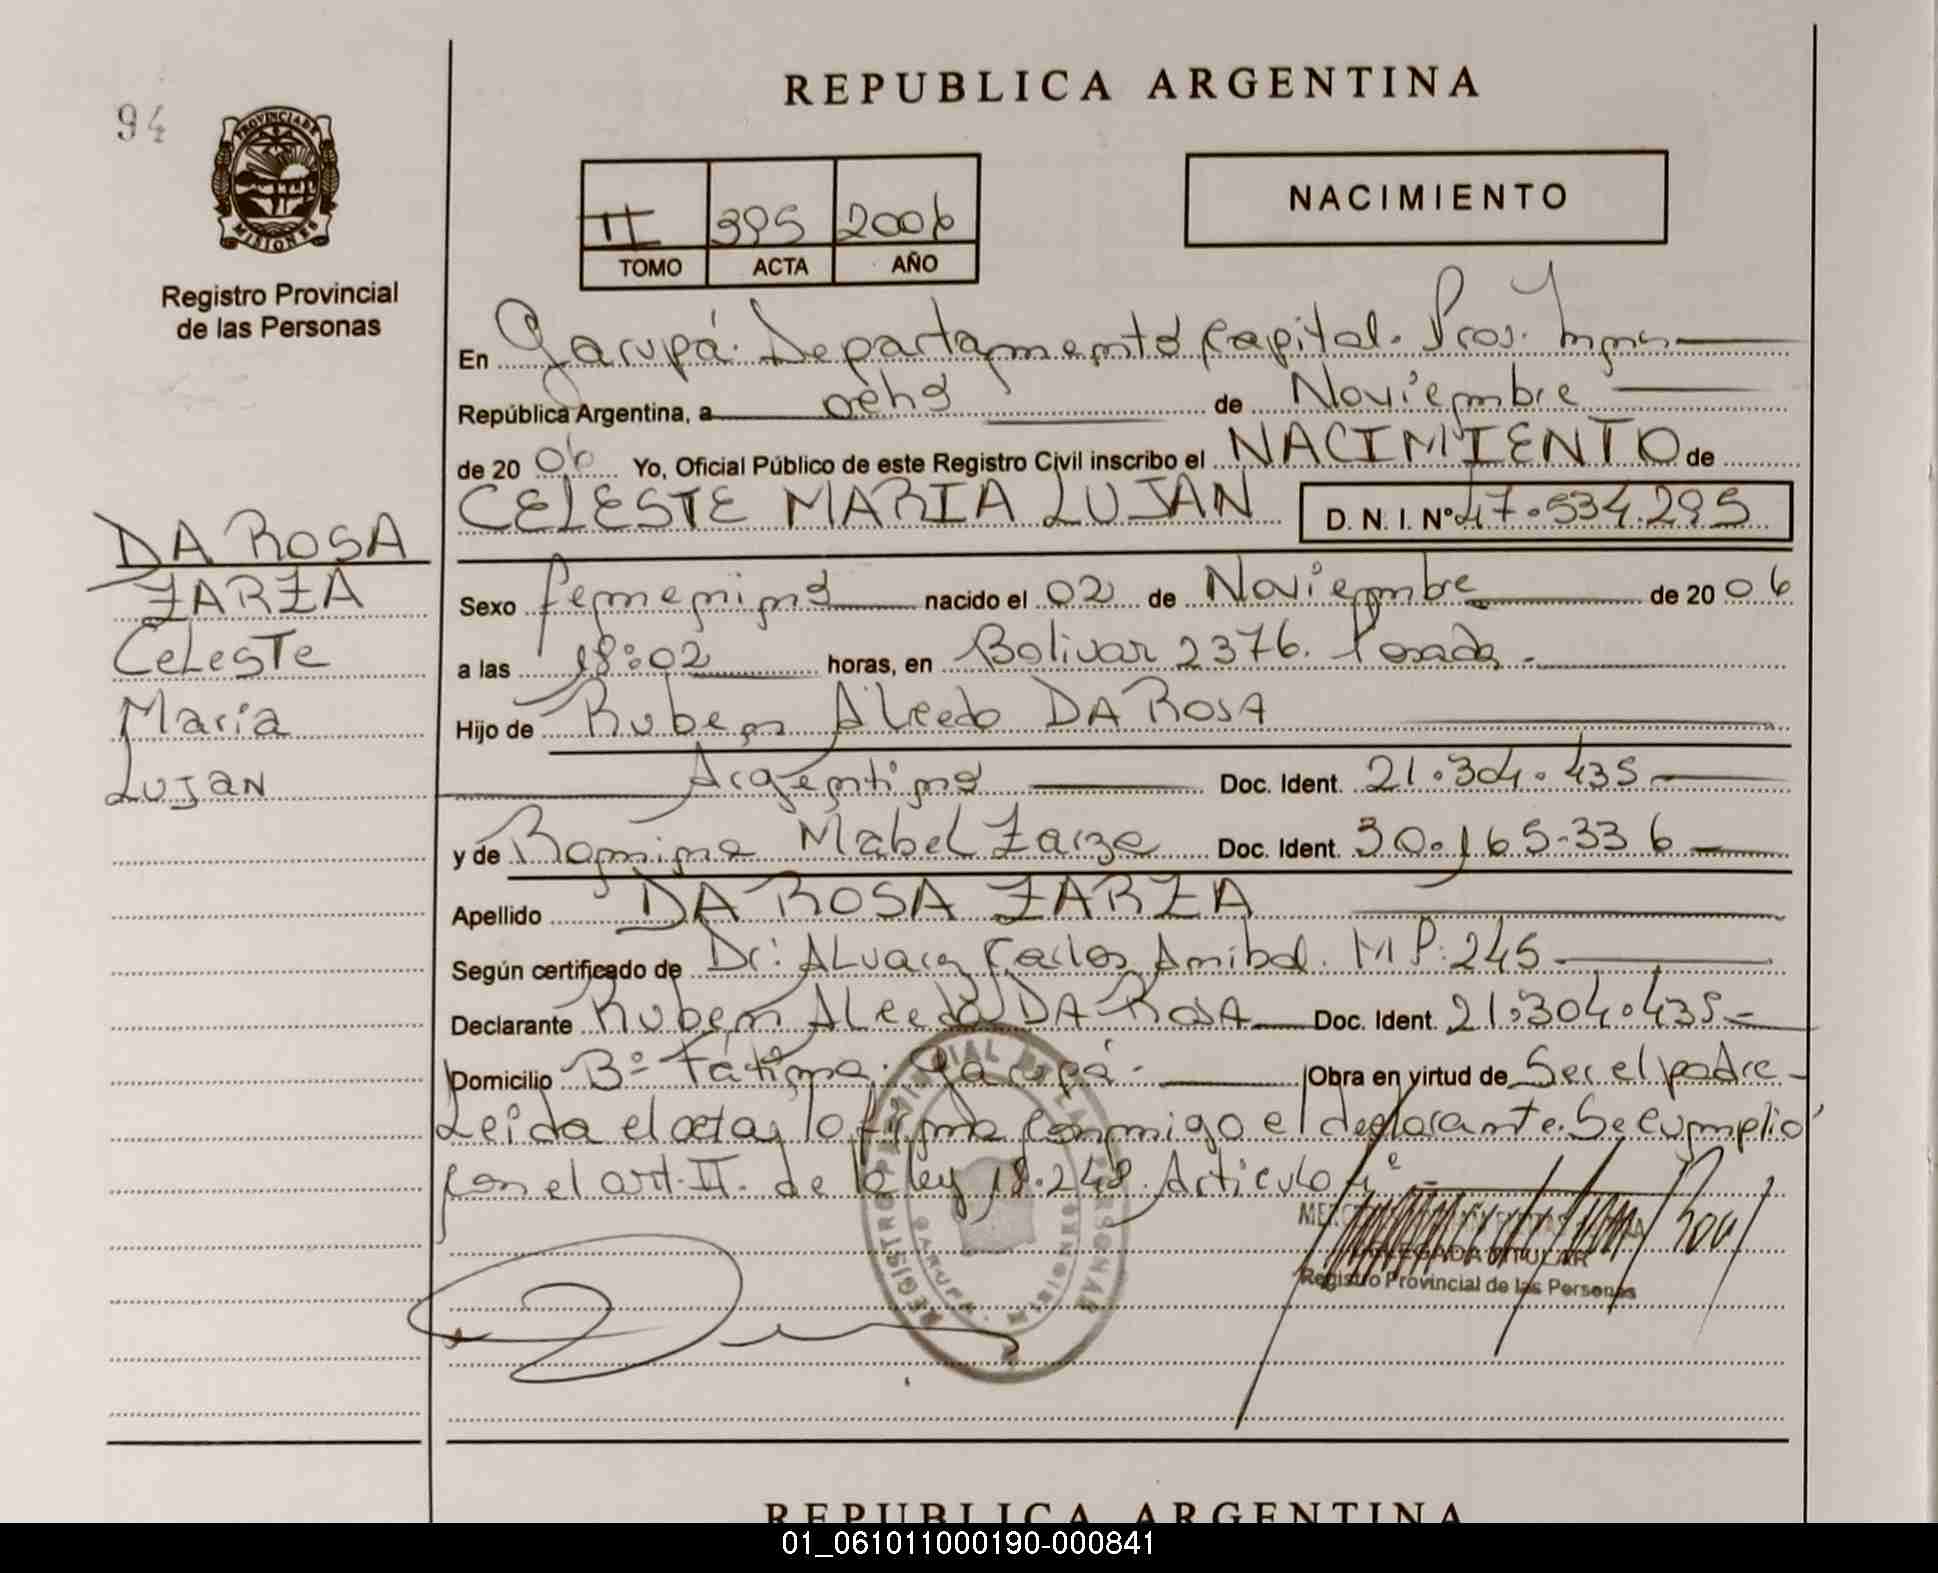 94
REPUBLICA ARGENTINA
PROVINCIA DE
MISIONES
Registro Provincial
de las Personas
II 395 2006
TOMO ACTA AÑO
NACIMIENTO
En Garupá. Departamento Capital. Prov. Mnes
República Argentina, a ocho de Noviembre
de 20 06 Yo, Oficial Público de este Registro Civil inscribo el NACIMIENTO de
CELESTE MARIA LUJAN D. N. I. Nº 47.534.295
DA ROSA
ZARZA
Celeste
María
Lujan
Sexo femenino nacido el 02 de Noviembre de 20 06
a las 18:02 horas, en Bolivar 2376. Posadas.
Hijo de Ruben Alfredo DA ROSA
Argentino Doc. Ident. 21.304.435
y de Romina Mabel Zarza Doc. Ident. 30.165.336
Apellido DA ROSA ZARZA
Según certificado de Dr: Alvarez Carlos Anibal. M P. 245
Declarante Ruben Alfredo DA ROSA Doc. Ident. 21.304.435
Domicilio Bº Fátima. Garupá. Obra en virtud de Ser el padre
Leída el acta, lo firma conmigo el declarante. Se cumplió
con el art. II. de la ley 18.248. Articulo
REGISTRO PROVINCIAL DE LAS PERSONAS
GARUPA MISIONES
DELEGADA TITULAR
Registro Provincial de las Personas
REPUBLICA ARGENTINA
01_061011000190-000841